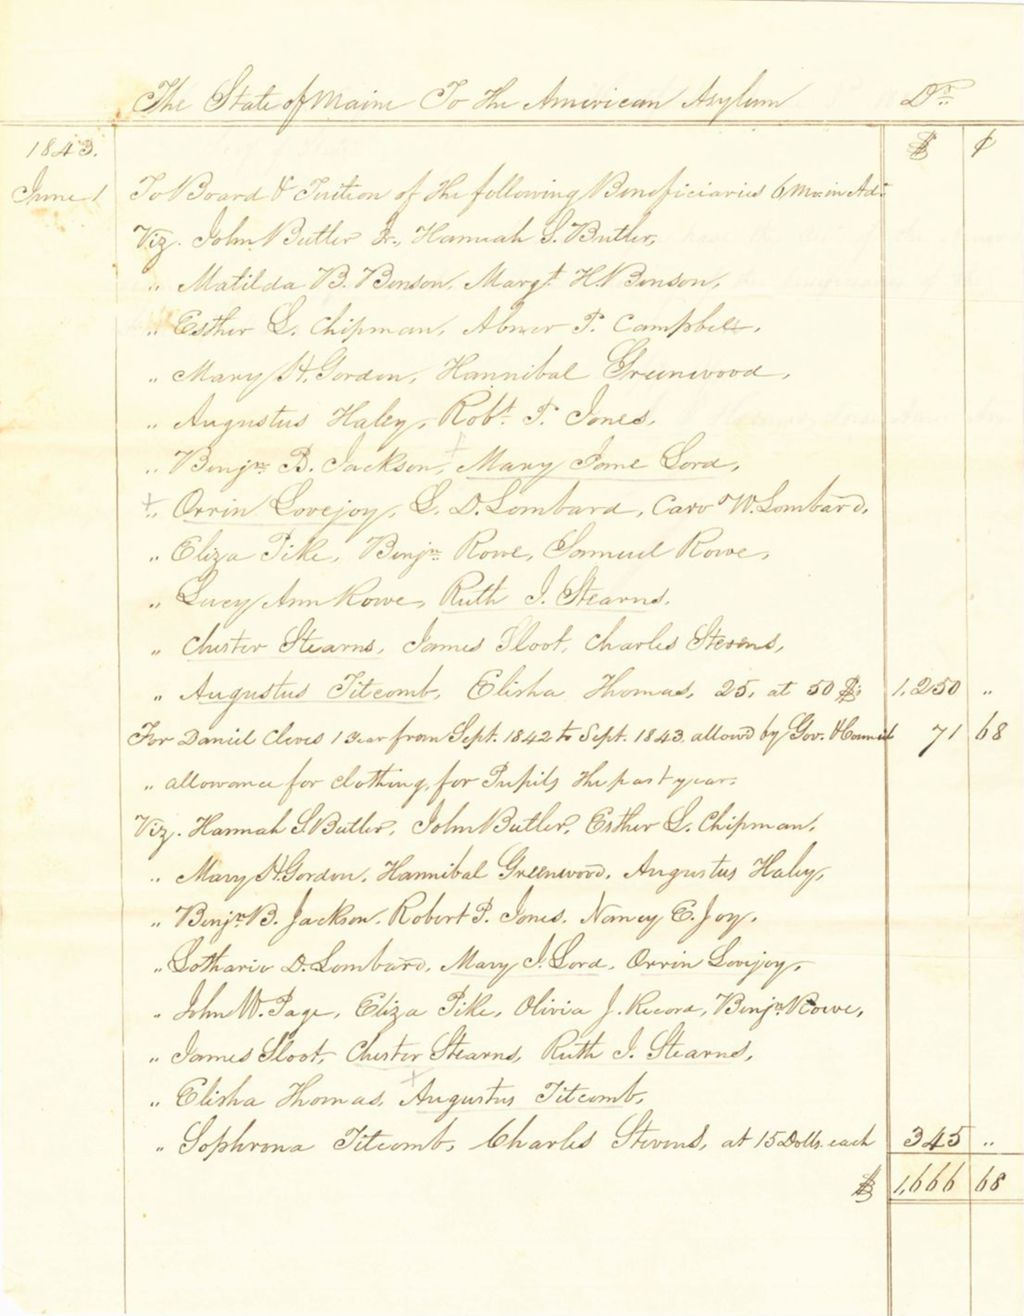 The State of Maine To the American Asylum Dr.
1843. $ ¢
June 1 To Board & Tuition of the following Beneficiaries 6 Mo. in Ad:
Viz. John Butler Jr., Hannah S. Butler,
" Matilda B. Benson, Margt. H. Benson,
" Esther L. Chipman, Abner P. Campbell,
" Mary H. Gordon, Hannibal Greenwood,
" Augustus Haley, Robt. P. Jones,
" Benjn. B. Jackson, + Mary Jane Lord,
+ " Orrin Lovejoy, L. D. Lombard, Caro W. Lombard,
" Eliza Pike, Benjn. Rowe, Samuel Rowe,
" Lucy Ann Rowe, Ruth J. Stearns,
" Chester Stearns, James Sloot, Charles Stevens,
" Augustus Titcomb, Elisha Thomas, 25, at 50 $; 1,250 "
For Daniel Cleves 1 year from Sept. 1842 to Sept. 1843 allowd by Gov. & Council 71 68
" allowance for clothing, for Pupils the past year.
Viz. Hannah S. Butler, John Butler, Esther L. Chipman,
" Mary H. Gordon, Hannibal Greenwood, Augustus Haley,
" Benjn. B. Jackson, Robert P. Jones, Nancy E. Joy,
" Lothario D. Lombard, Mary J. Lord, Orrin Lovejoy,
" John W. Page, Eliza Pike, Olivia J. Record, Benjn. Rowe,
" James Sloot, Chester Stearns, Ruth J. Stearns,
" Elisha Thomas, + Augustus Titcomb,
" Sophrona Titcomb, Charles Stevens, at 15 Dolls. each 345 "
$ 1,666 68